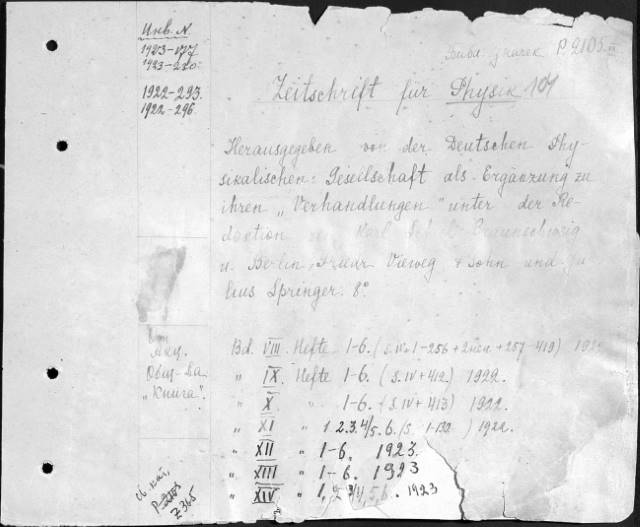 Инв. N.
1923-177
1923-220
1922-293.
1922-296.
P 2105
Zeitschrift für Physik 101
Herausgegeben von der Deutschen Phy-
sikalischen Geseilschaft als Ergänzung zu
ihren „Verhandlungen" unter der Re-
daction von Karl Scheel Braunschweig
u. Berlin, Friedr Vieweg & Sohn und Ju-
lius Springer. 8°
Акц.
Общ-ва
"Книга".
Bd. VIII. Hefte 1-6. (S. IV+1-256+2 +257-419) 192
" IX. Hefte 1-6. (S. IV+412) 1922.
" X " 1-6. (S. IV+413) 1922.
" XI " 1.2.3.4/5.6. (S. 1-132 ) 1922.
" XII " 1-6. 1923.
" XIII " 1-6. 1923
" XIV " 1, 2 3/4, 5, 6. 1923
P-2105
Z 365